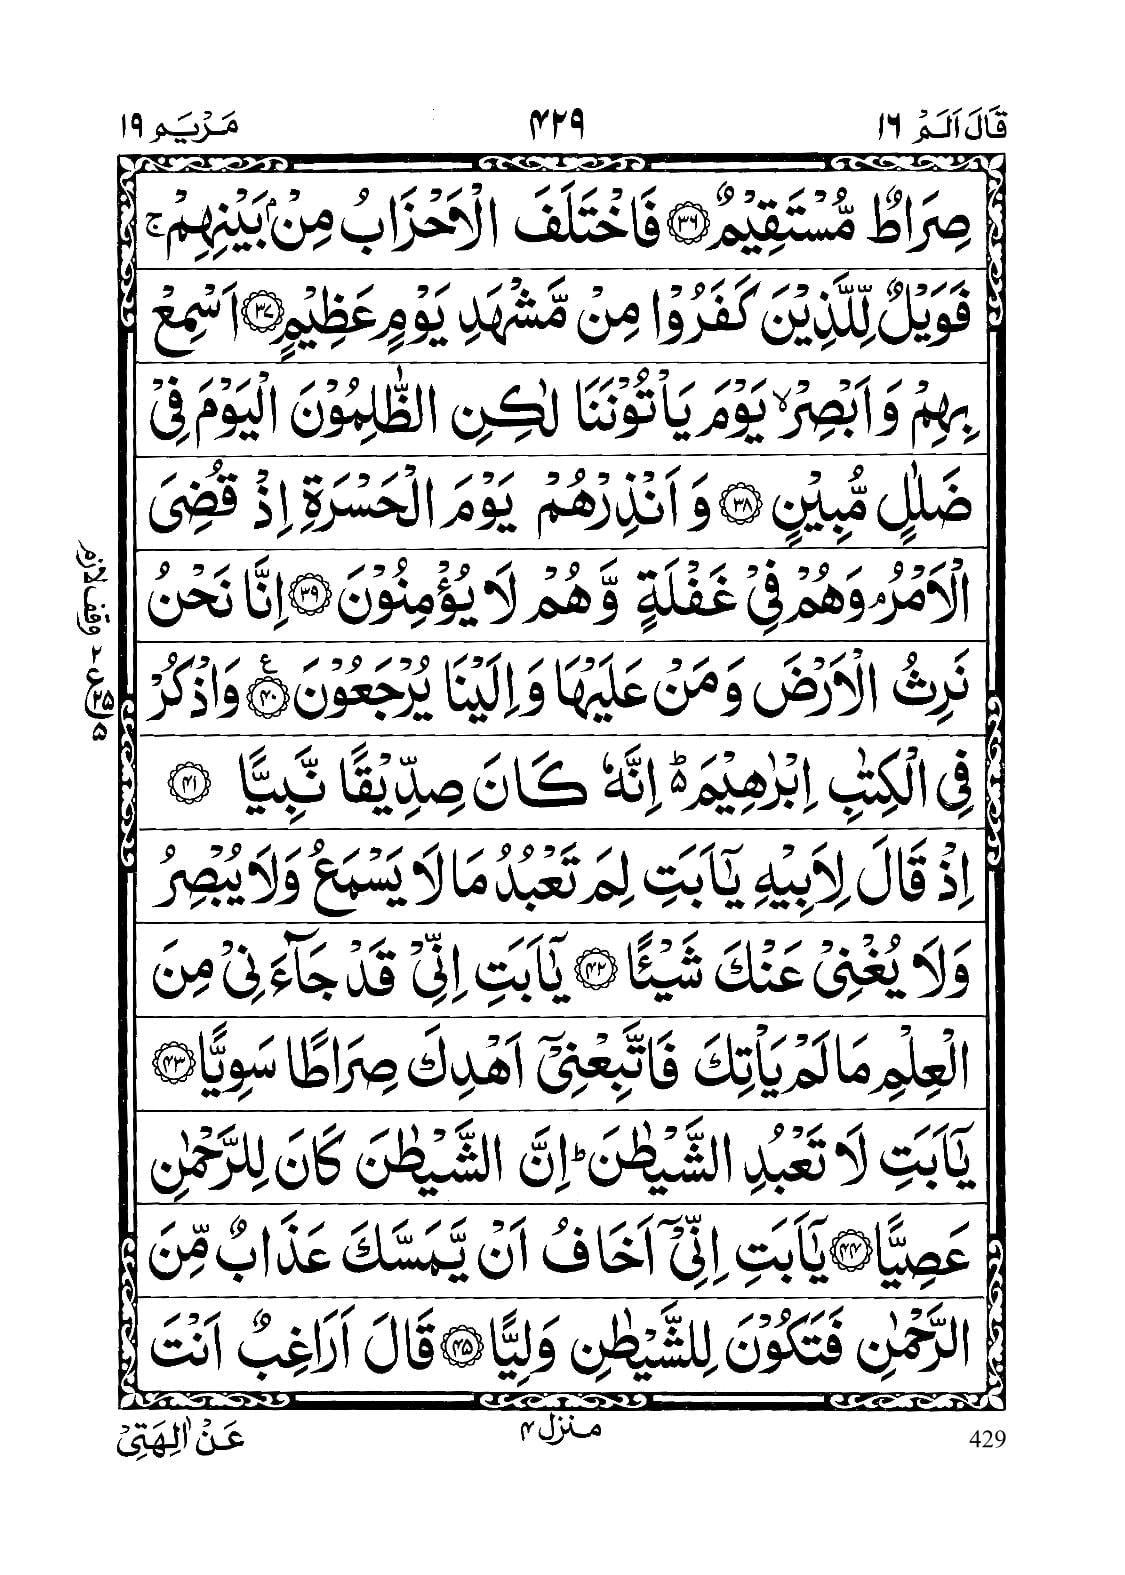 قَالَ اَلَمْ ١٦ ٤٢٩ مَرْيَم ١٩
صِرَاطٌ مُّسْتَقِيْمٌ ﴿٣٦﴾ فَاخْتَلَفَ الْاَحْزَابُ مِنْۢ بَيْنِهِمْ ۚ
فَوَيْلٌ لِّلَّذِيْنَ كَفَرُوْا مِنْ مَّشْهَدِ يَوْمٍ عَظِيْمٍ ﴿٣٧﴾ اَسْمِعْ
بِهِمْ وَاَبْصِرْ ۙ يَوْمَ يَاْتُوْنَنَا لٰكِنِ الظّٰلِمُوْنَ الْيَوْمَ فِيْ
ضَلٰلٍ مُّبِيْنٍ ﴿٣٨﴾ وَاَنْذِرْهُمْ يَوْمَ الْحَسْرَةِ اِذْ قُضِيَ
الْاَمْرُ ۘ وَهُمْ فِيْ غَفْلَةٍ وَّهُمْ لَا يُؤْمِنُوْنَ ﴿٣٩﴾ اِنَّا نَحْنُ
نَرِثُ الْاَرْضَ وَمَنْ عَلَيْهَا وَاِلَيْنَا يُرْجَعُوْنَ ﴿٤٠﴾ ع وَاذْكُرْ
فِي الْكِتٰبِ اِبْرٰهِيْمَ ۬ؕ اِنَّهٗ كَانَ صِدِّيْقًا نَّبِيًّا ﴿٤١﴾
اِذْ قَالَ لِاَبِيْهِ يٰۤاَبَتِ لِمَ تَعْبُدُ مَا لَا يَسْمَعُ وَلَا يُبْصِرُ
وَلَا يُغْنِيْ عَنْكَ شَيْـًٔا ﴿٤٢﴾ يٰۤاَبَتِ اِنِّيْ قَدْ جَآءَنِيْ مِنَ
الْعِلْمِ مَا لَمْ يَاْتِكَ فَاتَّبِعْنِيْۤ اَهْدِكَ صِرَاطًا سَوِيًّا ﴿٤٣﴾
يٰۤاَبَتِ لَا تَعْبُدِ الشَّيْطٰنَ ؕ اِنَّ الشَّيْطٰنَ كَانَ لِلرَّحْمٰنِ
عَصِيًّا ﴿٤٤﴾ يٰۤاَبَتِ اِنِّيْۤ اَخَافُ اَنْ يَّمَسَّكَ عَذَابٌ مِّنَ
الرَّحْمٰنِ فَتَكُوْنَ لِلشَّيْطٰنِ وَلِيًّا ﴿٤٥﴾ قَالَ اَرَاغِبٌ اَنْتَ
وقف لازم
٢ ع ٢٥ ٥
429 منزل ٤ عَنْ اٰلِهَتِيْ